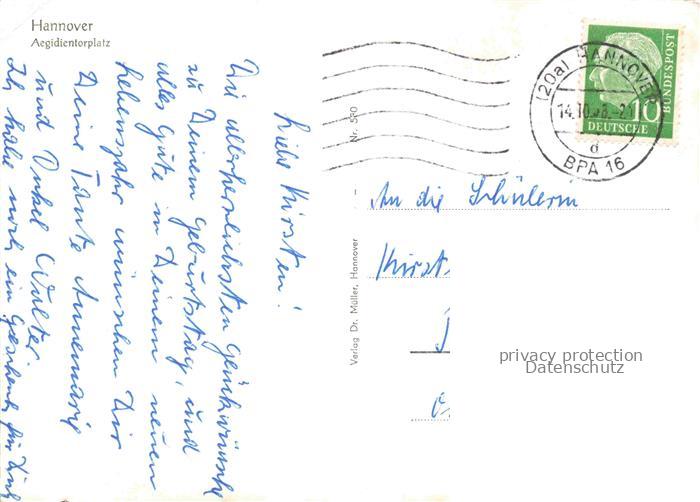 Hannover
Aegidientorplatz
Liebe Kirsten!
Die allerherzlichsten Glückwünsche
zu Deinem Geburtstag, und
alles Gute in Deinem neuen
Lebensjahr wünschen Dir
Deine Tante Annemarie
und Onkel Walter.
Ich habe noch ein Geschenk für Dich
Nr. 530
Verlag Dr. Müller, Hannover
(20a) HANNOVER
14.10.
d
BPA 16
10
DEUTSCHE
BUNDESPOST
An die Schülerin
Kirst
privacy protection
Datenschutz